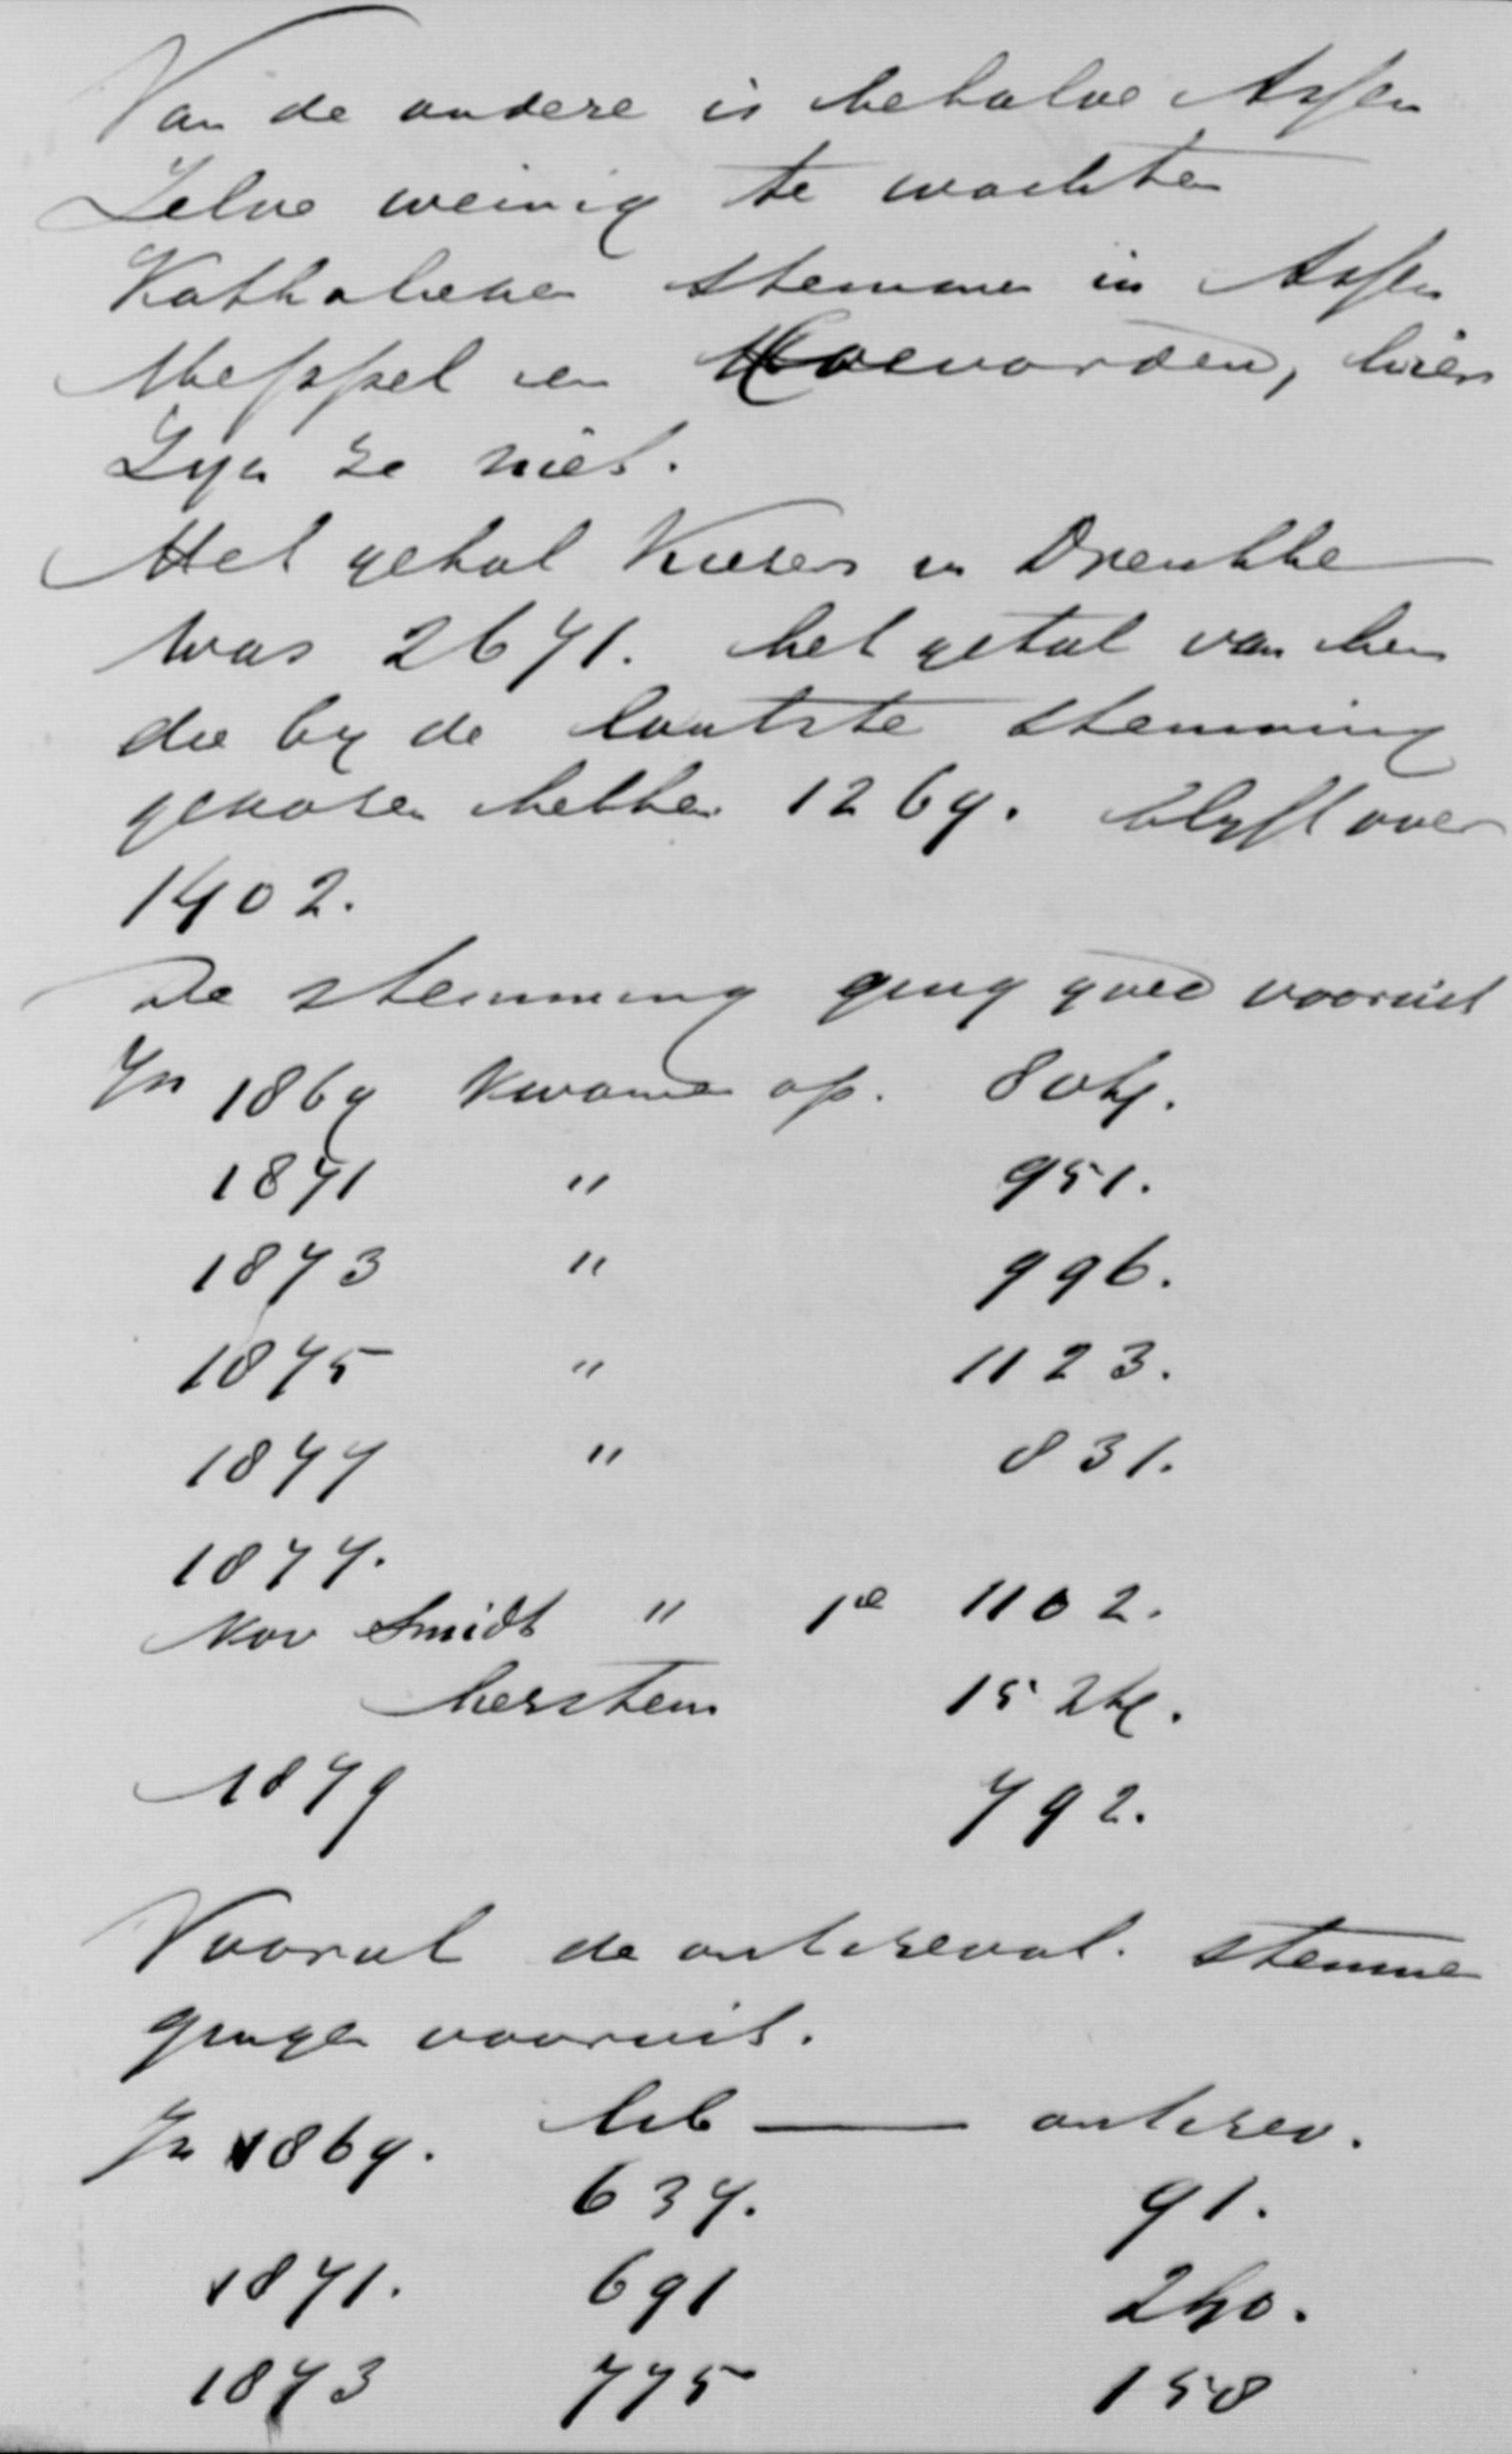 Van de andere is behalve Assen
Zelve weinig te wachten
Katholieken stemmen in Assen
Meppel en Coevorden, hier
Zyn ze niet.
Het getal Kiezers in Drenthe
was 2671. het getal van hen
die by de laatste stemming
gekozen hebben 1269. blyft over
1402.
De stemming ging goed vooruit
In 1869 kwamen op. 804.
1871 " 951.
1873 " 996.
1875 " 1123.
1877 " 831.
1877.
Nov Smidt " 1e 1102.
herstem 1524.
1879 792.
Vooral de antirevol. stemmen
gingen vooruit.
In 1869. lib — antirev.
637. 91.
1871. 691 240.
1873 775 158